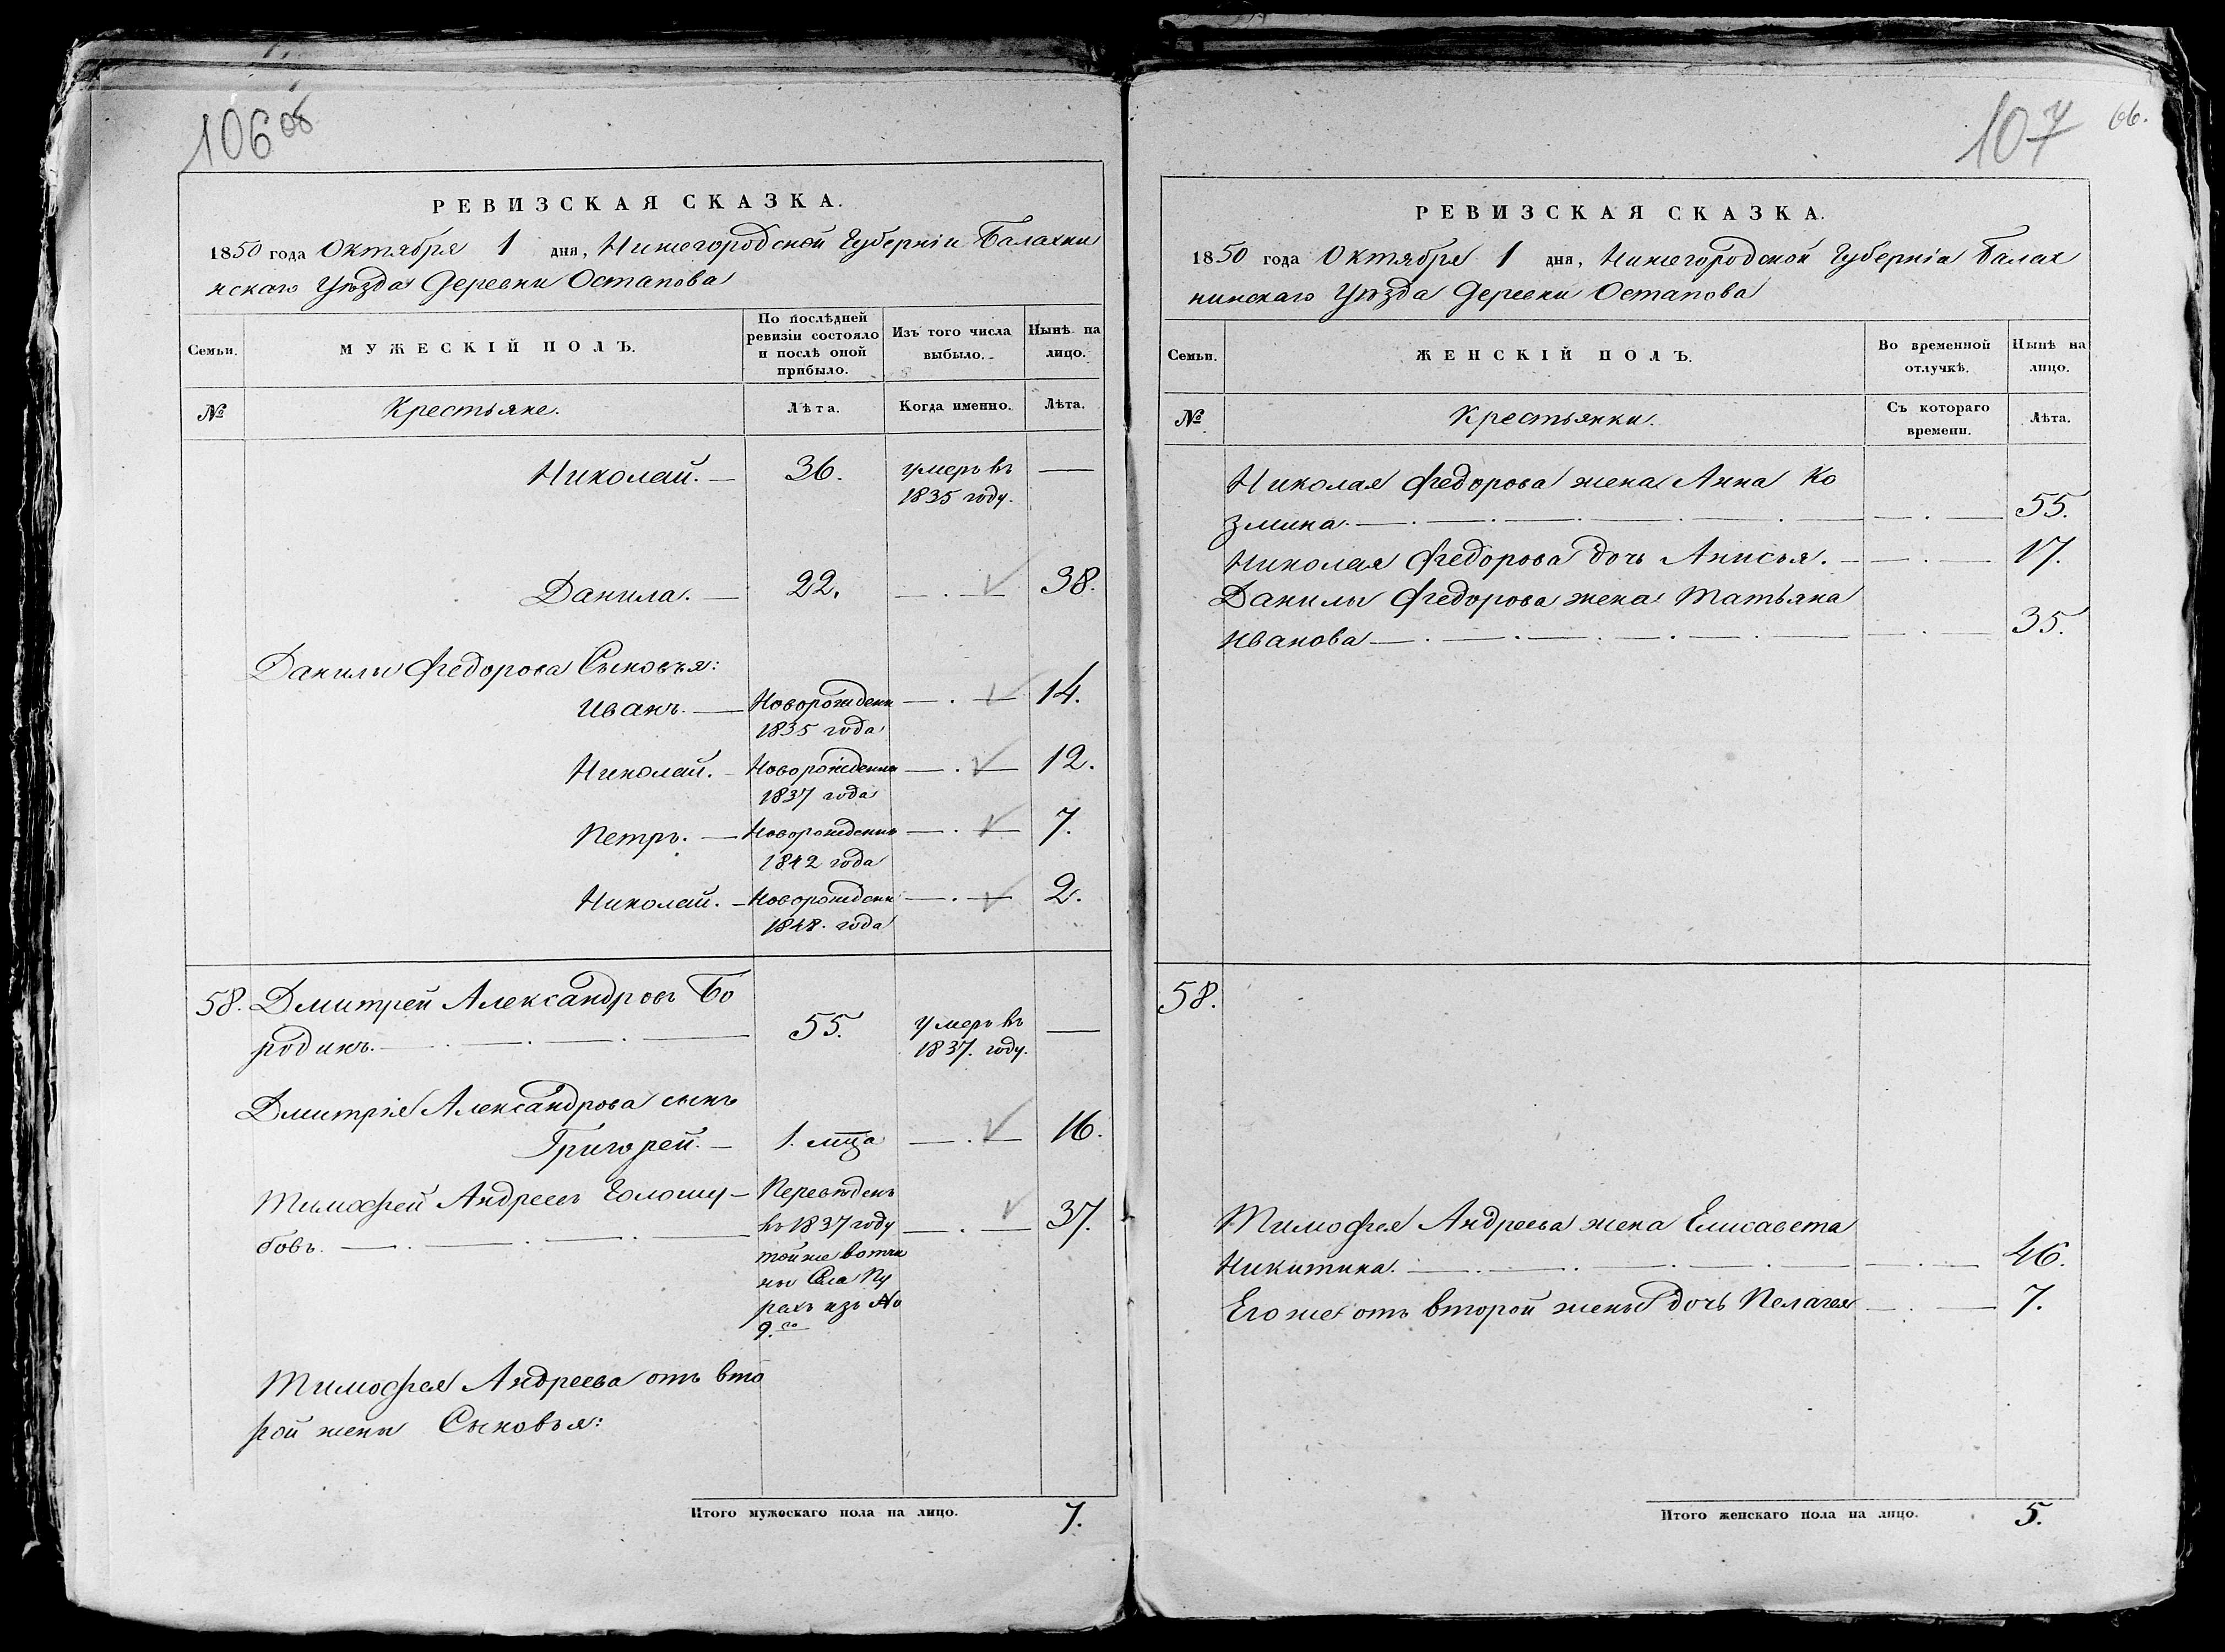 106 об
РЕВИЗСКАЯ СКАЗКА.
1850 года Октября 1 дня, Нижегородской Губерніи Балахни
нскаго Уѣзда Деревни Остапова
Семьи.
МУЖЕСКІЙ ПОЛЪ.
По послѣдней
ревизіи состояло
и послѣ оной
прибыло.
Изъ того числа
выбыло.
Нынѣ на
лицо.
№
Крестьяне.
Лѣта.
Когда именно.
Лѣта.
Николай. — 36. умеръ въ —
1835 году.
Данила. — 22. — . — 38.
Данилы Федорова Сыновья:
Иванъ. — Новорожден — . — 14.
1835 года
Николай. — Новорожденн — . — 12.
1837 года
Петръ. — Новорожденн — . — 7.
1842 года
Николай. — Новорожденн — . — 2.
1848. года
58. Дмитрей Александровъ Бо
родинъ. — 55. умеръ въ —
1837. году.
Дмитрія Александрова сынъ
Григорей. — 1. мца — . — 16.
Тимофей Андреевъ Голошу–
бовъ. — Переведенъ
въ 1837 году — . — 37.
той же вотчи
ны Села Пу
рехъ изъ №
9.го
Тимофея Андреева отъ вто
рой жены Сыновья:
Итого мужескаго пола на лицо. 7.
107 66.
РЕВИЗСКАЯ СКАЗКА.
1850 года Октября 1 дня, Нижегородской Губерніи Балах
нинскаго Уѣзда Деревни Остапова
Семьи.
ЖЕНСКІЙ ПОЛЪ.
Во временной
отлучкѣ.
Нынѣ на
лицо.
№
Крестьянки.
Съ котораго
времени.
Лѣта.
Николая Федорова жена Анна Ко
змина. — . — 55.
Николая Федорова дочь Анисья. — . — 17.
Данилы Федорова жена Татьяна
Иванова — . — 35.
58.
Тимофея Андреева жена Елисавета
Никитина. — . — 46.
Его же отъ второй жены дочь Пелагея — . — 7.
Итого женскаго пола на лицо. 5.